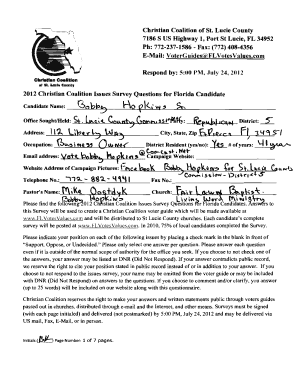 Christian Coalition of St. Lucie County
7186 S US Highway 1, Port St Lucie, FL 34952
Ph: 772-237-1586 - Fax: (772) 408-4356
E-Mail: VoterGuide@FLVotesValues.com
Respond by: 5:00 PM, July 24, 2012
Christian Coalition
of St. Lucie County
2012 Christian Coalition Issues Survey Questions for Florida Candidate
Candidate Name: Bobby Hopkins Sr.
Office Sought/Held: St. Lucie County Commission Republican District: 5
Address: 112 Liberty Way City, State, Zip Ft. Pierce Fl 34951
Occupation: Business Owner District Resident (yes/no): Yes # of years: 41 year
Email address: Vote Bobby Hopkins@Comcast.Net Campaign Website:
Website Address of Campaign Pictures: Facebook Bobby Hopkins for St. Lucie County
Commission - District 5
Telephone No.: 772-882-4941 Fax No.:
Pastor's Name: Mike Oostdyk Church: Fair Lawn Baptist
Bobby Hopkins Living Word Ministry
Please find the following 2012 Christian Coalition Issues Survey Questions for Florida Candidates. Answers to
this Survey will be used to create a Christian voter guide which will be made available at
www.FLVotesValues.com and will be distributed to St Lucie County churches. Each candidate's complete
survey will be posted at www.FLVotesValues.com. In 2010, 75% of local candidates completed the Survey.
Please indicate your position on each of the following issues by placing a check mark in the blank in front of
"Support, Oppose, or Undecided." Please only select one answer per question. Please answer each question
even if it is outside of the normal scope of authority for the office you seek. If you choose to not check one of
the answers, your answer may be listed as DNR (Did Not Respond). If your answer contradicts public record,
we reserve the right to cite your position stated in public record instead of or in addition to your answer. If you
choose to not respond to the issues survey, your name may be omitted from the voter guide or may be included
with DNR (Did Not Respond) on answers to the questions. If you choose to comment and/or clarify, your answer
(up to 25 words) will be included on our website along with this questionnaire.
Christian Coalition reserves the right to make your answers and written statements public through voters guides
passed out in churches, distributed through e-mail and the Internet, and other means. Surveys must be signed
(with each page initialed) and delivered (not postmarked) by 5:00 PM, July 24, 2012 and may be delivered via
US mail, Fax, E-Mail, or in person.
Initials: BH Page Number 1 of 7 pages.